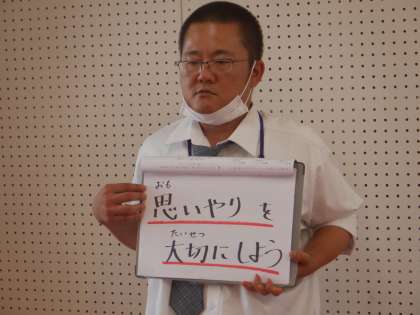 おも
思いやりを
たいせつ
大切にしよう